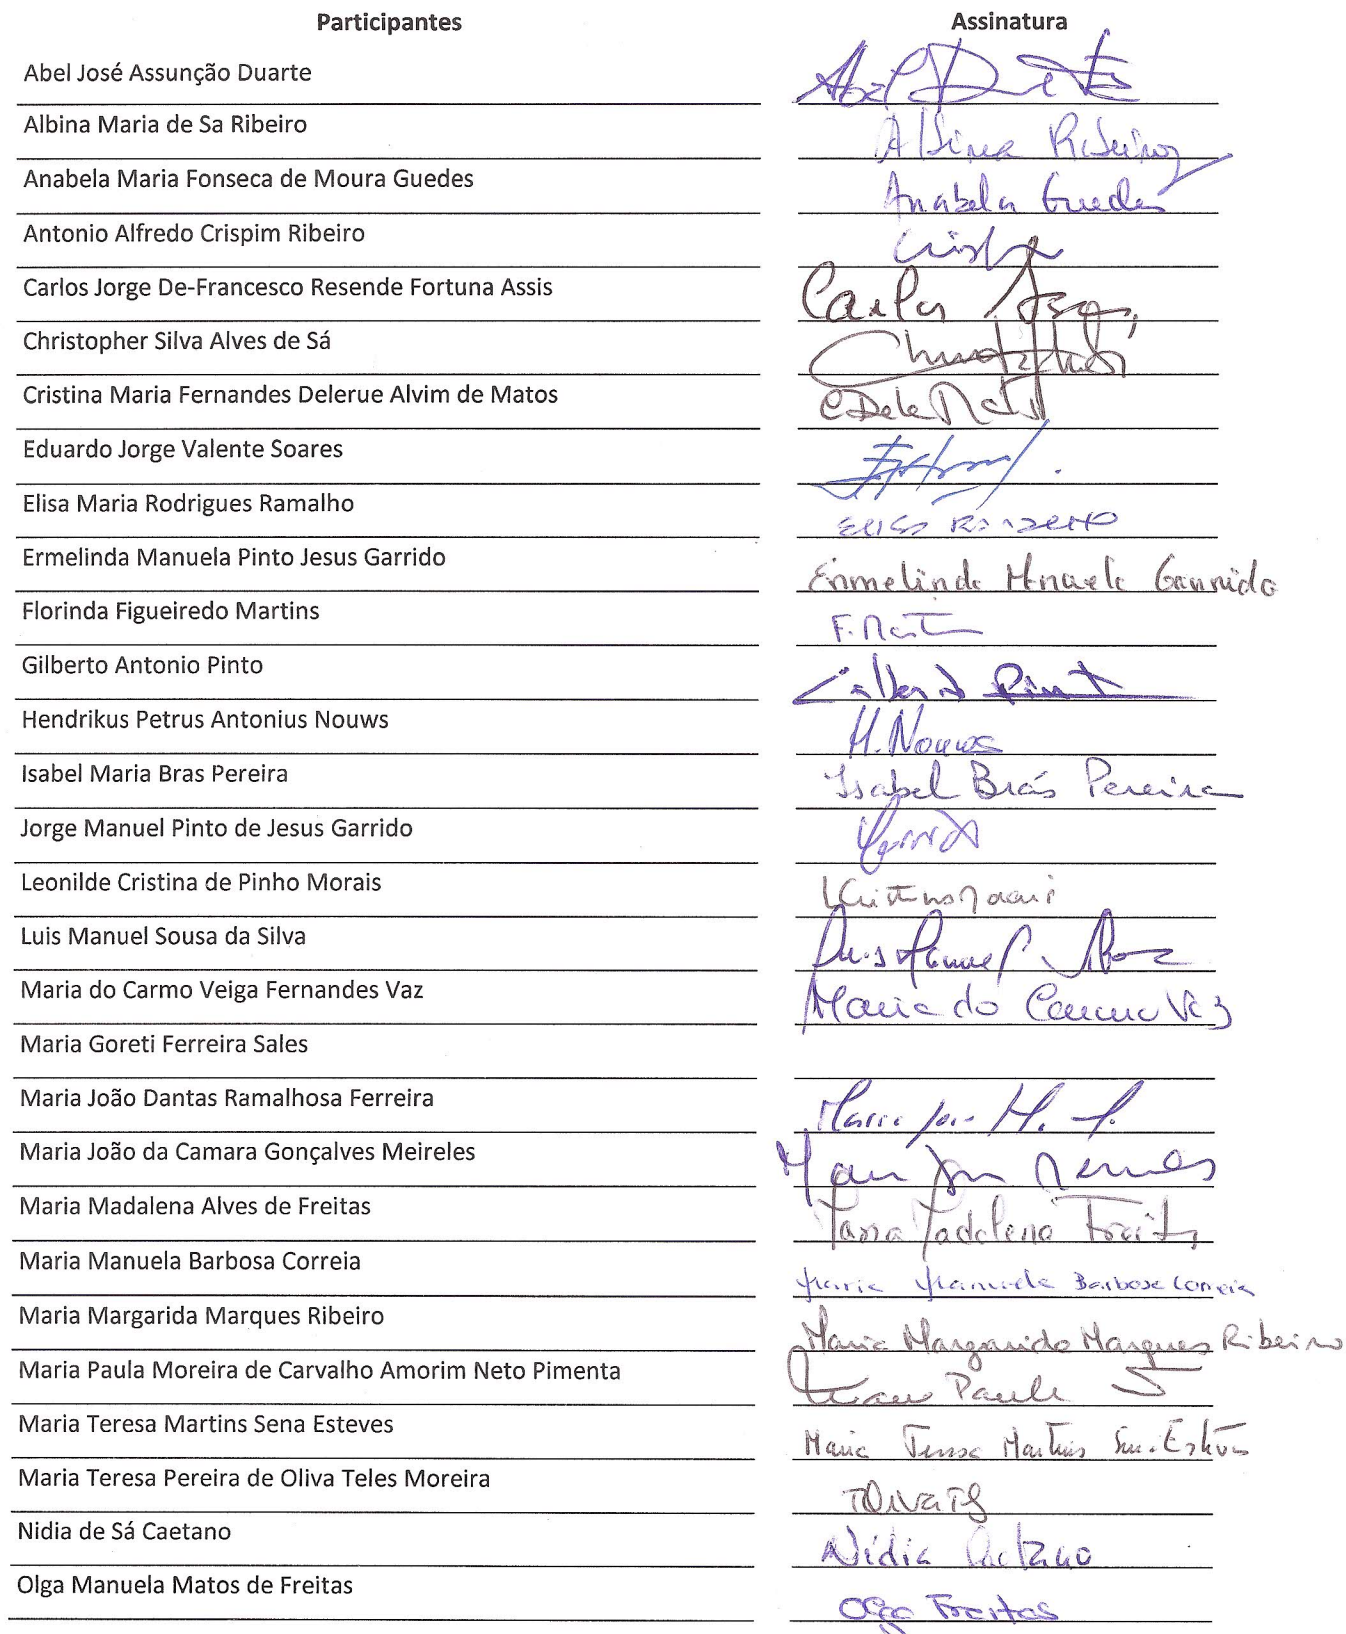 Participantes Assinatura
Abel José Assunção Duarte Abel Duarte
Albina Maria de Sa Ribeiro Albina Ribeiro
Anabela Maria Fonseca de Moura Guedes Anabela Guedes
Antonio Alfredo Crispim Ribeiro
Carlos Jorge De-Francesco Resende Fortuna Assis Carlos Assis
Christopher Silva Alves de Sá
Cristina Maria Fernandes Delerue Alvim de Matos
Eduardo Jorge Valente Soares
Elisa Maria Rodrigues Ramalho Elisa Ramalho
Ermelinda Manuela Pinto Jesus Garrido Ermelinda Manuela Garrido
Florinda Figueiredo Martins F. Martins
Gilberto Antonio Pinto Gilberto Pinto
Hendrikus Petrus Antonius Nouws H. Nouws
Isabel Maria Bras Pereira Isabel Brás Pereira
Jorge Manuel Pinto de Jesus Garrido Garrido
Leonilde Cristina de Pinho Morais
Luis Manuel Sousa da Silva Luis Manuel Silva
Maria do Carmo Veiga Fernandes Vaz Maria do Carmo Vaz
Maria Goreti Ferreira Sales
Maria João Dantas Ramalhosa Ferreira
Maria João da Camara Gonçalves Meireles Maria João Meireles
Maria Madalena Alves de Freitas Maria Madalena Freitas
Maria Manuela Barbosa Correia Maria Manuela Barbosa Correia
Maria Margarida Marques Ribeiro Maria Margarida Marques Ribeiro
Maria Paula Moreira de Carvalho Amorim Neto Pimenta Maria Paula
Maria Teresa Martins Sena Esteves Maria Teresa Martins Sena Esteves
Maria Teresa Pereira de Oliva Teles Moreira
Nidia de Sá Caetano Nídia Caetano
Olga Manuela Matos de Freitas Olga Freitas